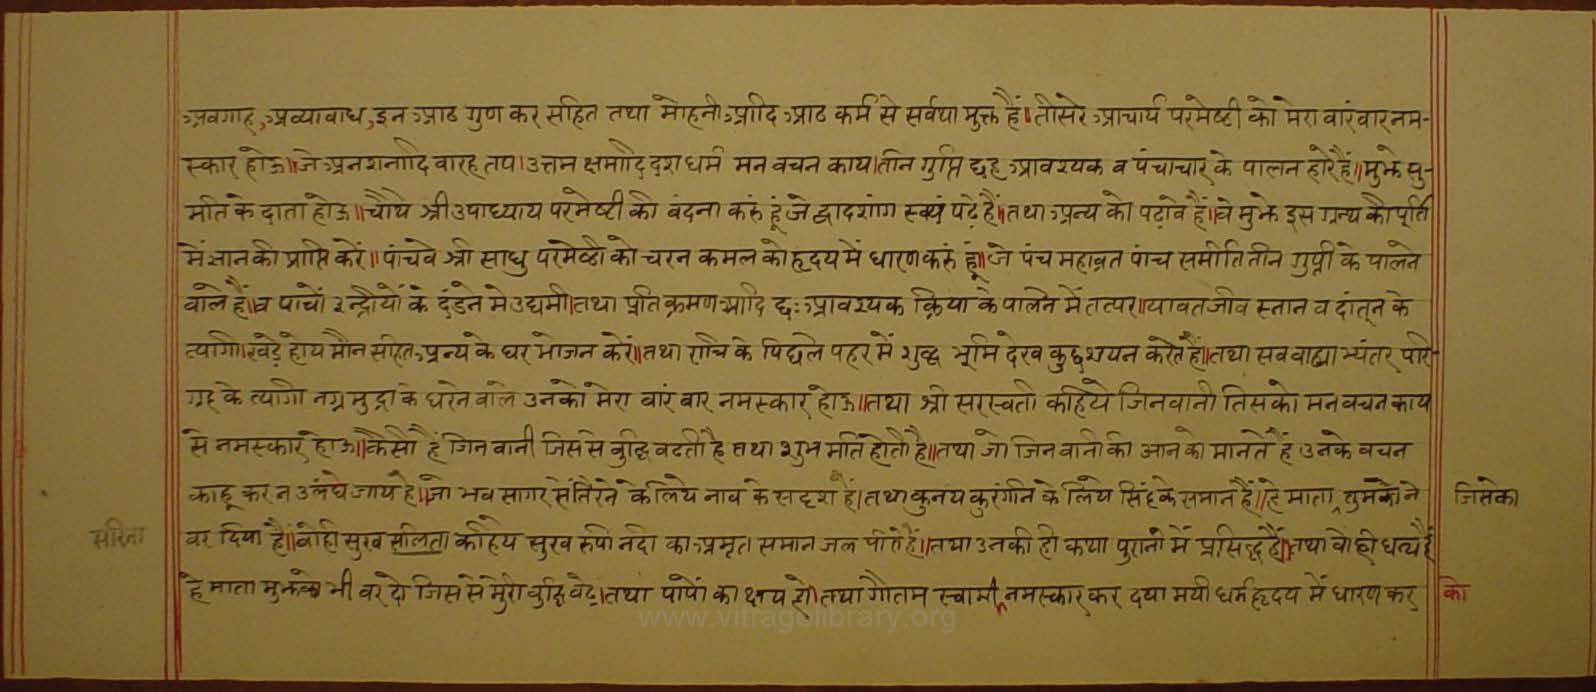 अवगाह, अव्यावाध, इन आठ गुण कर सहित तथा मोहनी आदि आठ कर्म से सर्वथा मुक्त हैं। तीसरे आचार्य परमेष्टी को मेरा वारंवार नम-
स्कार होऊ॥ जे अनशनादि वारह तप। उत्तम क्षमादि दश धर्म मन वचन काय। तीन गुप्ति छह आवश्यक व पंचाचार के पालन हारे हैं॥ मुझे सु-
मति के दाता होऊ॥ चौथे श्री उपाध्याय परमेष्टी को वंदना करुं हूं जे द्वादशांग स्वयं पढ़े हैं॥ तथा अन्य को पढ़ावे हैं॥ वे मुझे इस ग्रन्थ की पूर्ति
में ज्ञान की प्राप्ति करें॥ पांचवे श्री साधु परमेष्ठी को चरन कमल को हृदय में धारण करुं हूं॥ जे पंच महाव्रत पांच समीति तीन गुप्ती के पालने
वाले हैं॥ व पाचों इन्द्रीयों के दंडने मे उद्यमी। तथा प्रति क्रमण आदि छः आवश्यक क्रिया के पालने में तत्पर॥ यावत जीव स्नान व दांतून के
त्यागी। खड़े होय मौन सहित अन्य के घर भोजन करें॥ तथा रात्रि के पिछले पहर में शुद्ध भूमि देख कुछ शयन करते हैं॥ तथा सव वाह्या भ्यंतर परि-
ग्रह के त्यागी नग्न मुद्रा के धरने वाले उनको मेरा वारं वार नमस्कार होऊ॥ तथा श्री सरस्वती कहिये जिनवानी तिसको मन वचन काय
से नमस्कार होऊ॥ कैसी हैं जिन वानी जिस से वुद्धि वढती है तथा शुभ मति होती है॥ तथा जो जिन वानी की आन को मानते हैं उनके वचन
काहू कर न उलंघे जाय है॥ जो भव सागर से तिरने के लिये नाव के सदृश हैं। तथा कुनय कुरंगनि के लिये सिंह के समान हैं॥ हे माता तुमको ने जिसको
वर दिया हैं॥ वोही सुख सलिता कहिये सुख रुपी नदी का अमृत समान जल पीते हैं॥ तथा उनकी ही कथा पुरानो में प्रसिद्ध हैं॥ तथा वो ही धन्य हैं
हे माता मुझको भी वर दो जिस से मेरी वुद्धि वढ़े। तथा पापों का क्षय हो। तथा गौतम स्वामी को नमस्कार कर दया मयी धर्म हृदय में धारण कर
सरिता
www.vitragelibrary.org